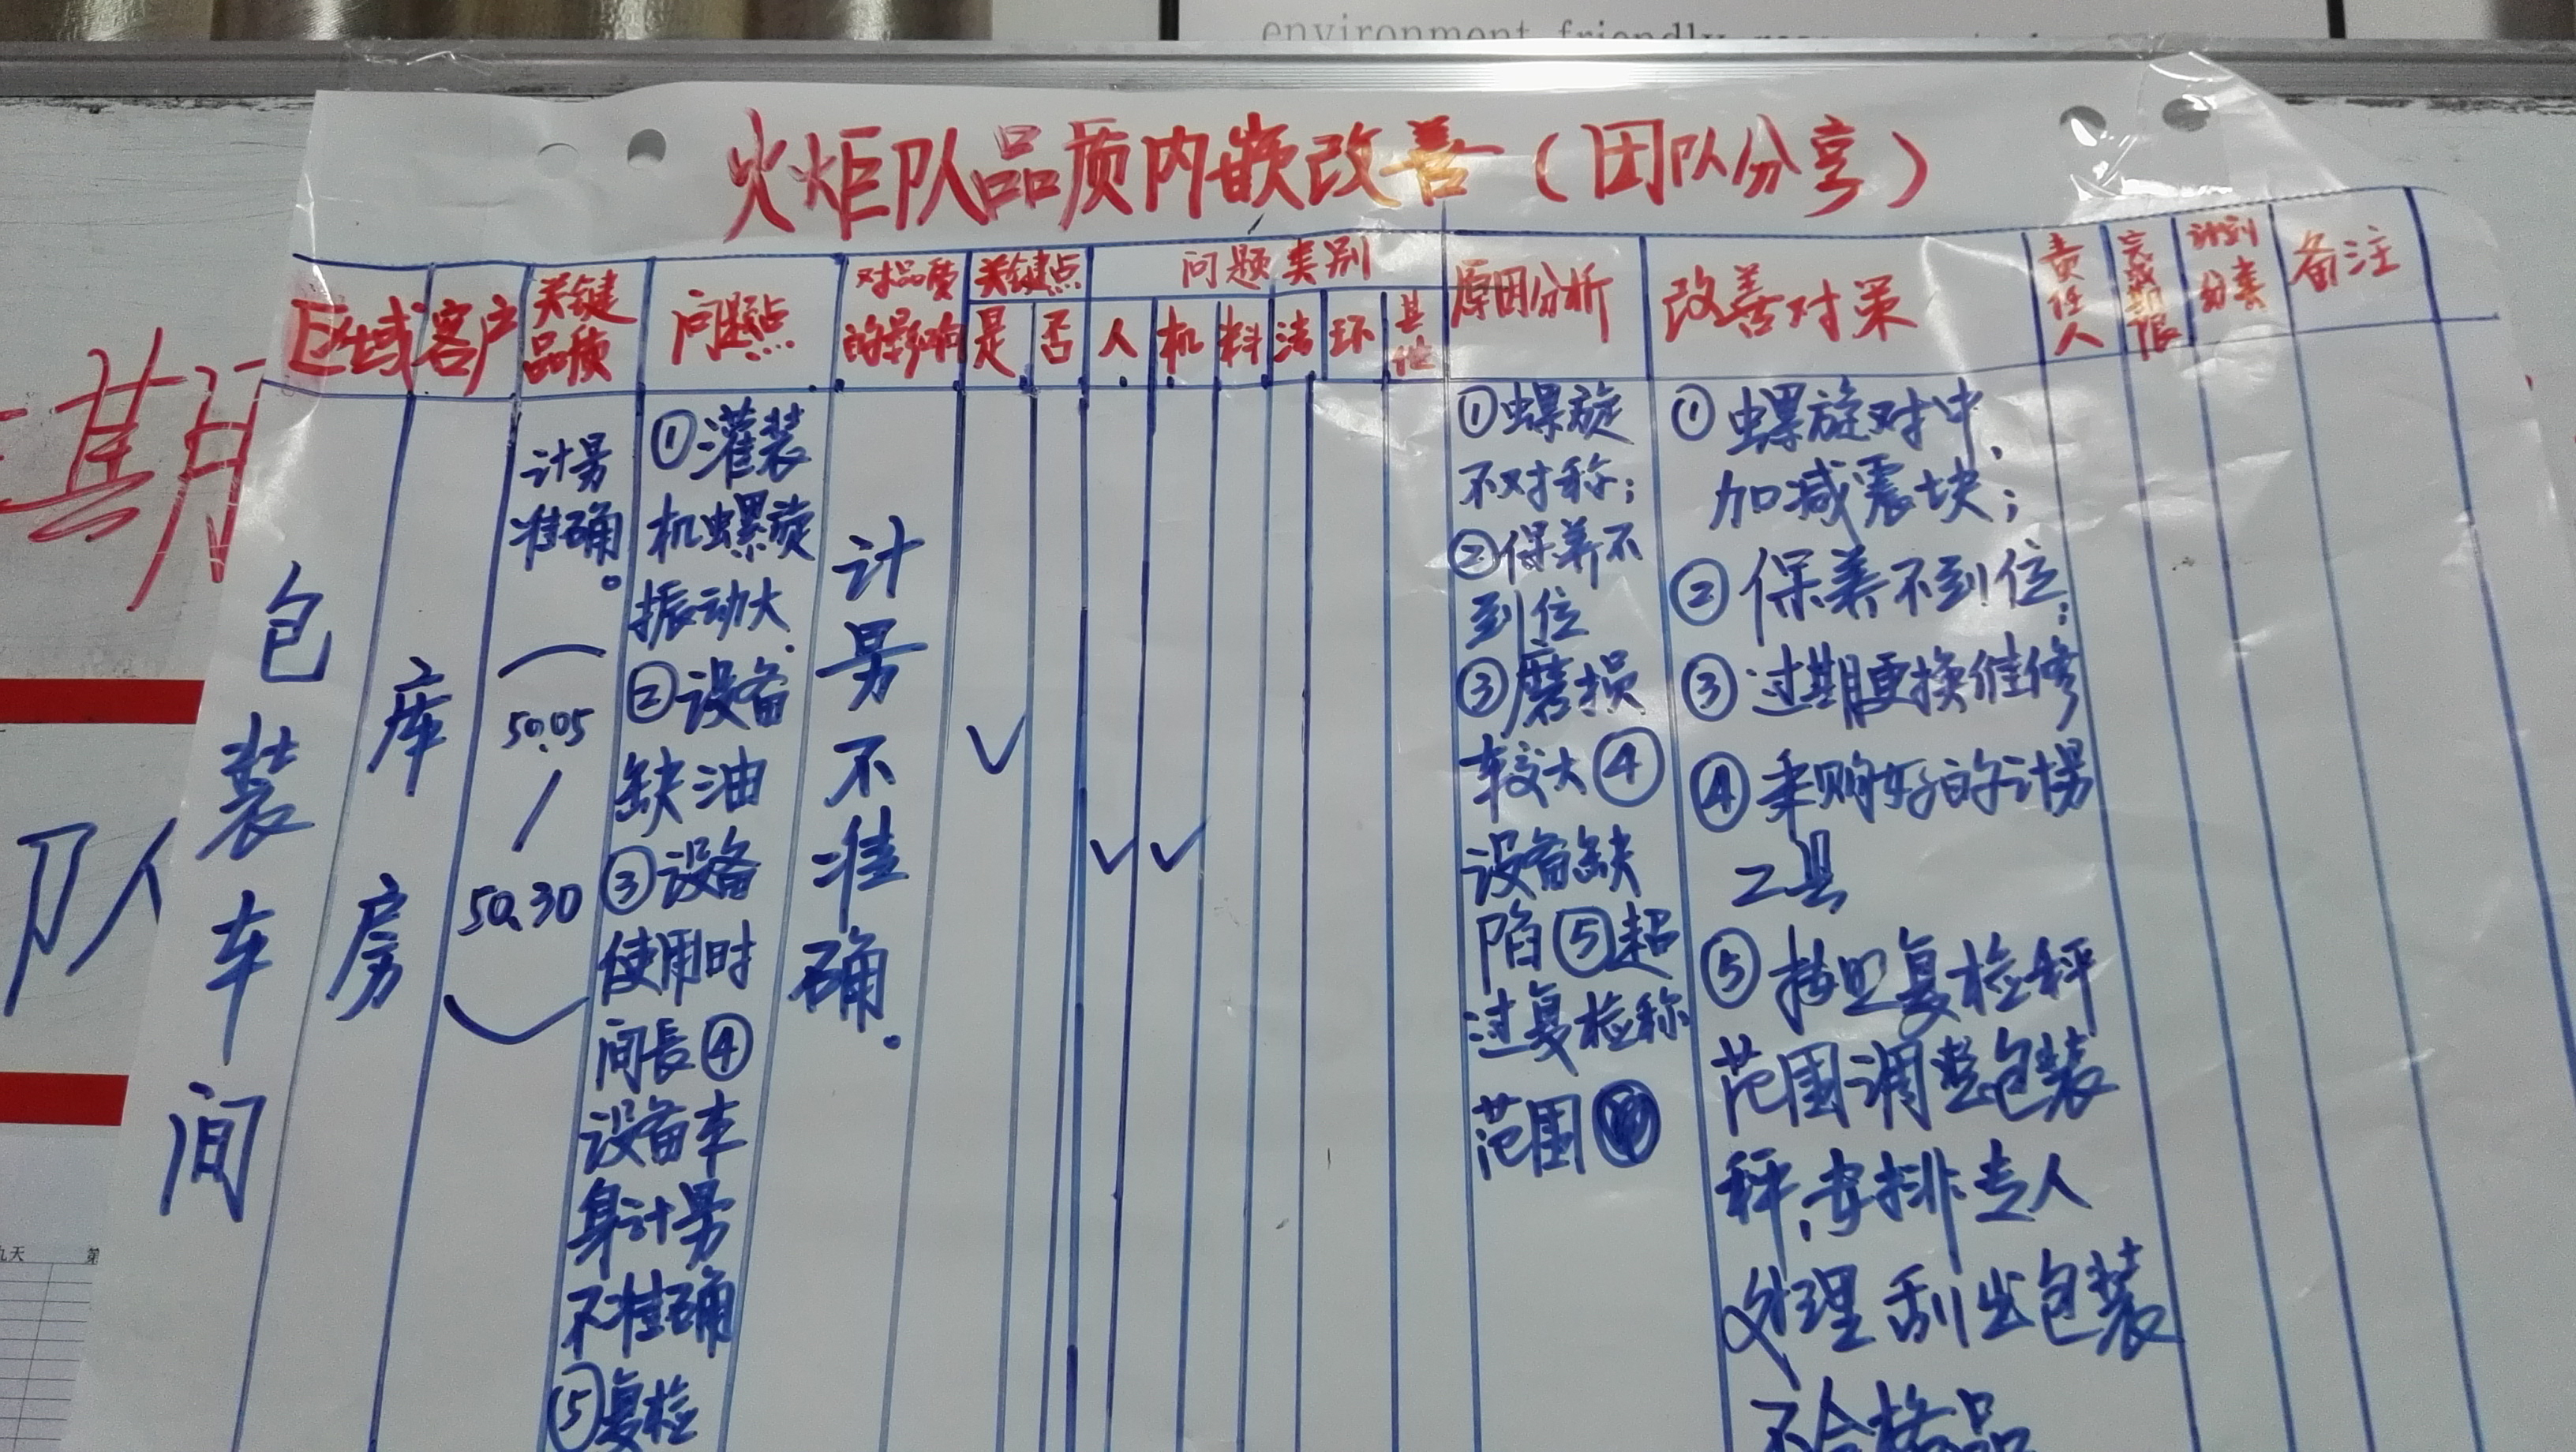 environment friendly
火炬队品质内嵌改善（团队分享）
区域
客户
关键
品质
问题点
对品质
的影响
关键点
是
否
问题类别
人
机
料
法
环
其他
原因分析
改善对策
责任人
完成期限
计划
分类
备注
包装车间
库房
计量
准确。
（50.05
/
50.30）
①灌装
机螺旋
振动大.
②设备
缺油
③设备
使用时
间長④
设备本
身计量
不准确
⑤复检
计量不准确.
✓
✓
✓
①螺旋
不对称；
②保养不
到位
③磨损
较大④
设备缺
陷⑤超
过复检称
范围
①螺旋对中,
加减震块；
②保养不到位；
③过期更换维修
④采购好的计量
工具
⑤按照复检秤
范围调整包装
秤,安排专人
处理刮出包装
不合格品
期
队
九天
第